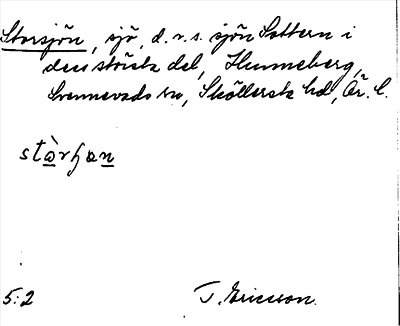 Storsjön, sjö, d. v. s. sjön Sottern i
den största del, Hunneberg,
Svennevads sn, Sköllersta hd, Ör. l.
stàrhan
5:2
T. Ericsson.